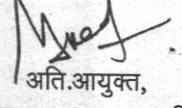 अति.आयुक्त,